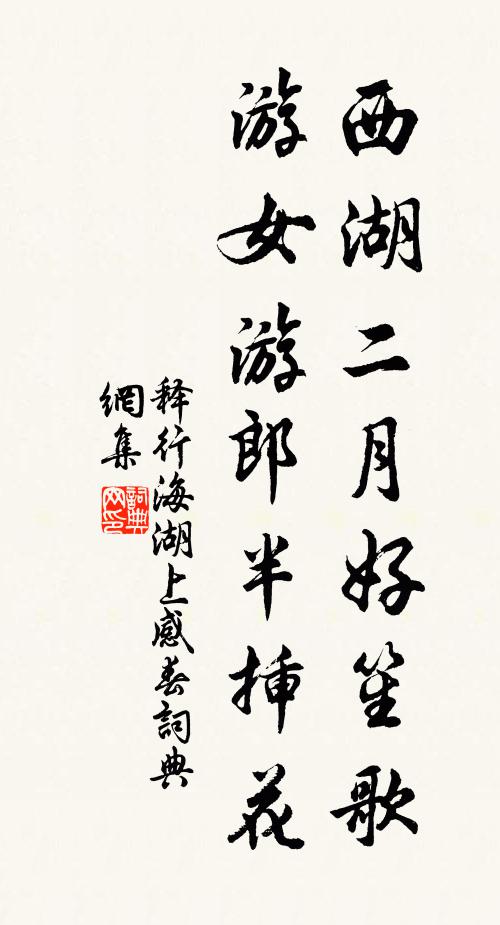 西湖二月好笙歌
游女游郎半揷花
释行海湖上感春詞典
網集
詞典網印